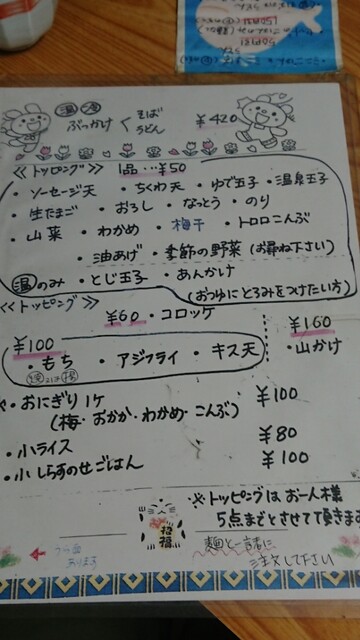 温 冷
ぶっかけ < そば うどん ¥420
<<トッピング>> 1品…¥50
・ソーセージ天 ・ちくわ天 ・ゆで玉子 ・温泉玉子
・生たまご ・おろし ・なっとう ・のり
・山菜 ・わかめ ・梅干 ・トロロこんぶ
・油あげ ・季節の野菜(お尋ね下さい)
温のみ ・とじ玉子 ・あんかけ
(おつゆにとろみをつけたい方)
<<トッピング>>
¥60 ・コロッケ
¥100
・もち ・アジフライ ・キス天
焼 又は 揚
¥160
・山かけ
・おにぎり 1ケ ¥100
(梅・おかか・わかめ・こんぶ)
・小ライス ¥80
・小 しらすのせごはん ¥100
※トッピングはお一人様
5点までとさせて頂きます
麺と一諸に
注文して下さい
招福
うら面
あります